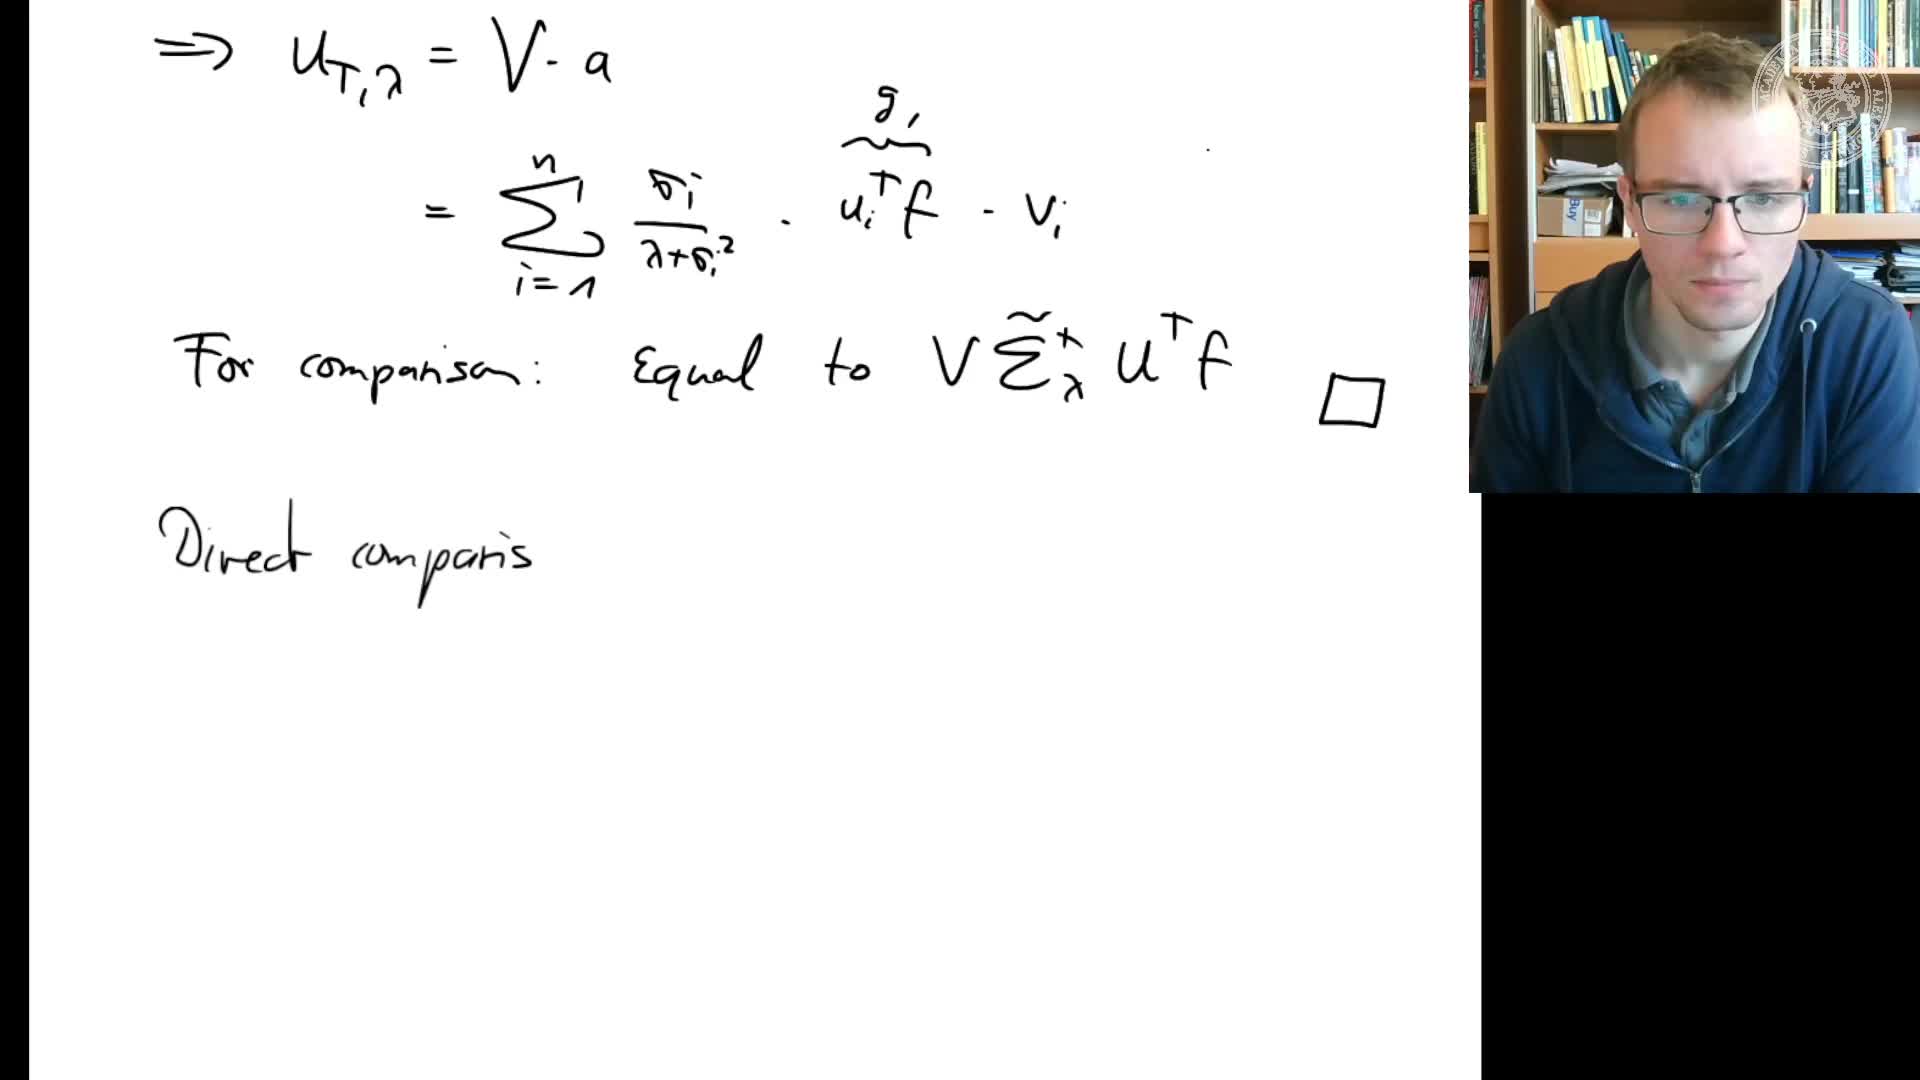 ⇒ u_{T,λ} = V · a
= \sum_{i=1}^{n} \frac{σ_i}{λ+σ_i^2} · \overbrace{u_i^T f}^{g_i} · v_i
For comparison: Equal to V \tilde{Σ}_λ^+ U^T f □
Direct comparis
Buy